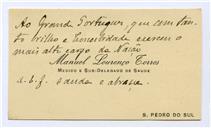 Ao Grande Portuguez, que com tan-
to brilho e honestidade exerceu o
mais alto cargo da Nação
Manuel Lourenço Torres
MEDICO E SUB-DELEGADO DE SAUDE
sauda e abraça.
S. PEDRO DO SUL